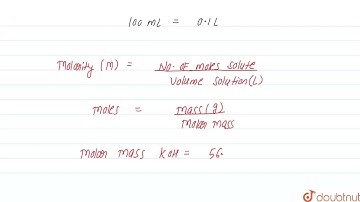 100 mL = 0.1L
Molarity (M) = No. of moles solute
Volume solution (L)
moles = mass (g)
Molar mass
Molar mass KOH = 56.
doubtnut